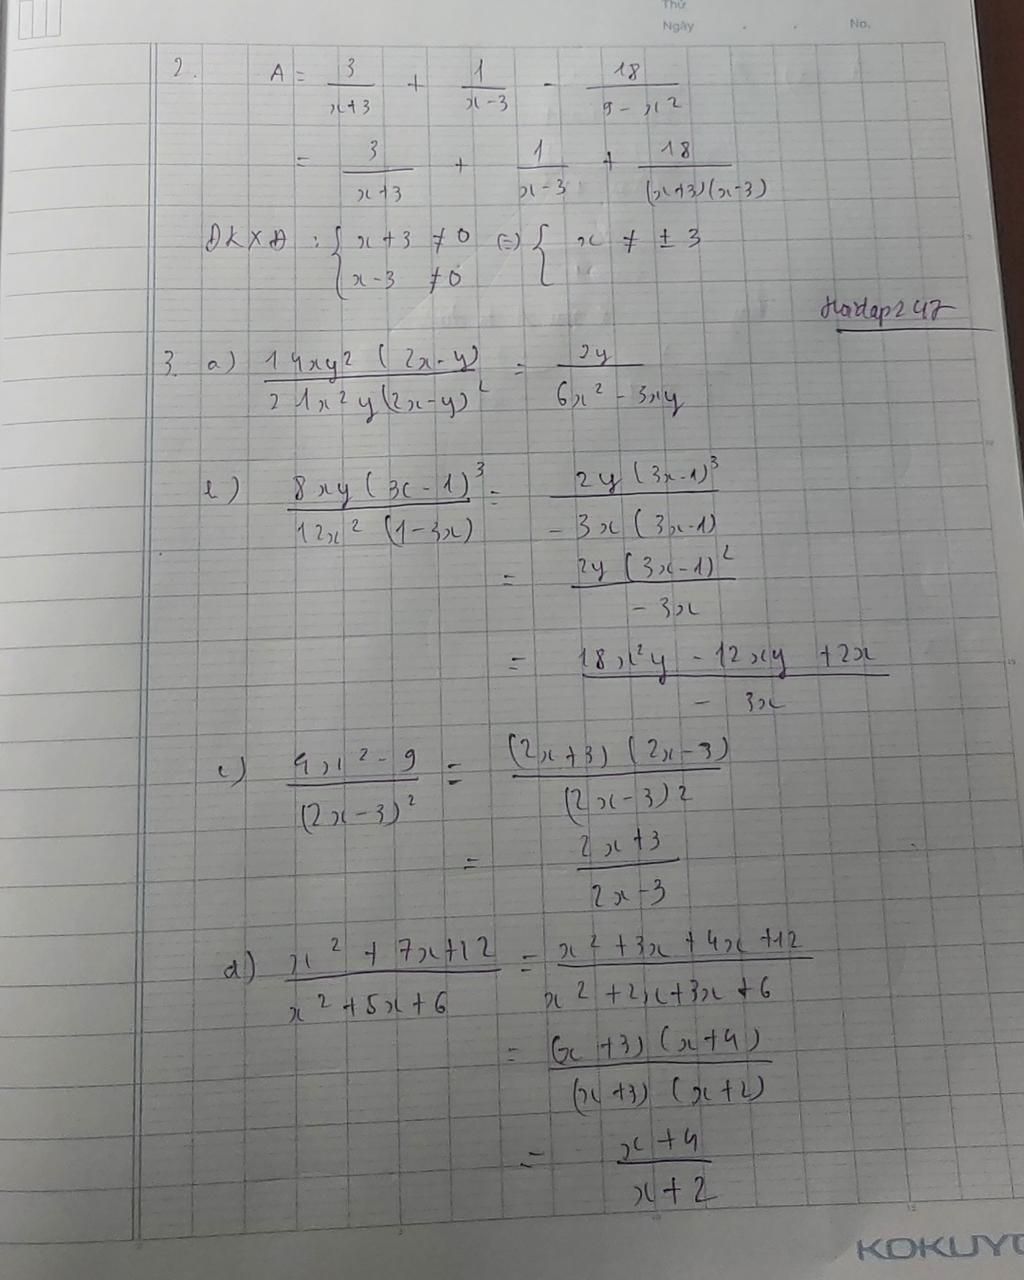 Thứ
Ngày . . No.
2. A = 3/(x+3) + 1/(x-3) - 18/(9-x²)
= 3/(x+3) + 1/(x-3) + 18/((x+3)(x-3))
ĐKXĐ: { x+3 ≠ 0 (=) { x ≠ ± 3
x-3 ≠ 0
3. a) 14xy²(2x-y)/21x²y(2x-y)² = 2y/(6x²-3xy)
b) 8xy(3x-1)³/12x²(1-3x) = 2y(3x-1)³/-3x(3x-1)
= 2y(3x-1)²/-3x
= (18x²y - 12xy + 2x)/-3x
c) (4x²-9)/(2x-3)² = (2x+3)(2x-3)/(2x-3)2
= (2x+3)/(2x-3)
d) (x²+7x+12)/(x²+5x+6) = (x²+3x+4x+12)/(x²+2x+3x+6)
= (x+3)(x+4)/(x+3)(x+2)
= (x+4)/(x+2)
KOKUYO